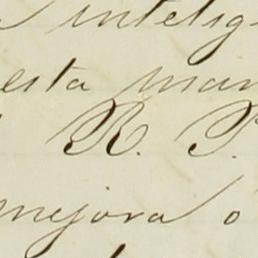 intelig
esta man
R. P.
mejora o